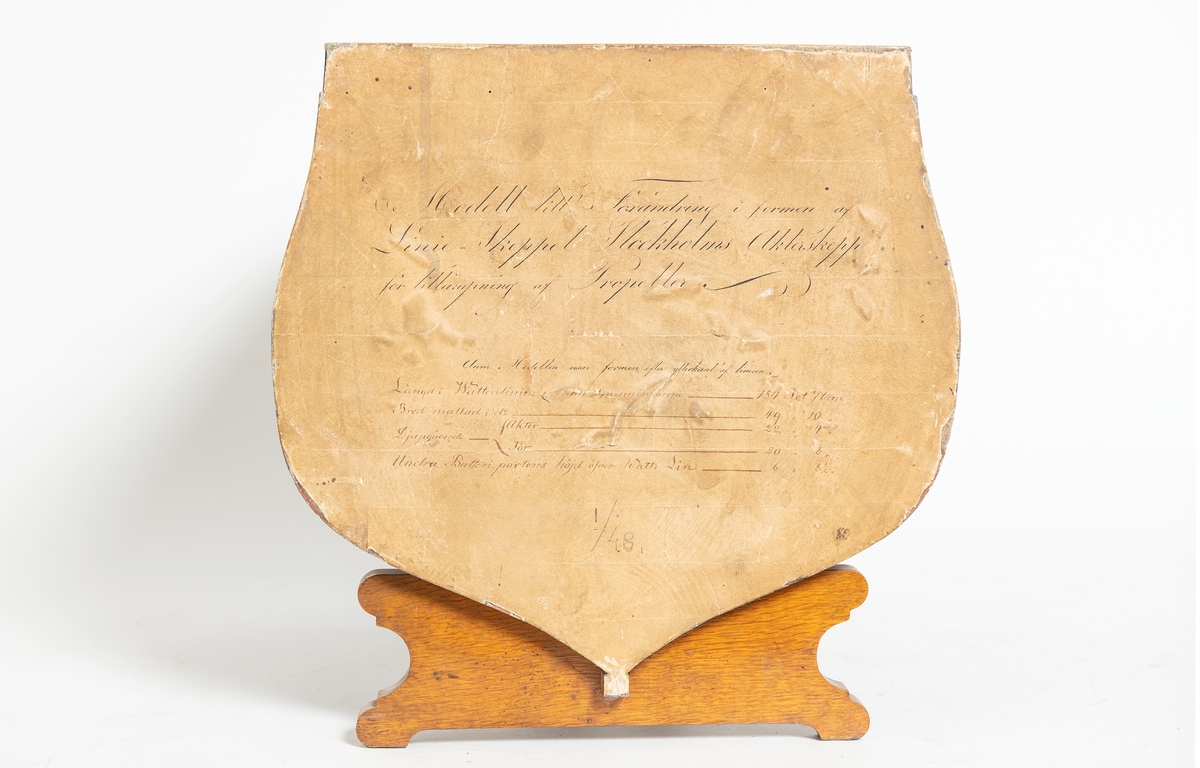 Modell till Förändring i formen af
Linie-Skeppet Stockholms Akterskepp
för tillämpning af Propeller
Modellen visar formen efter yttrekant af timren.
Längd i Wattenlinien 184 fot 7 tum
Bred mallad: do 49 " 10 "
Djupgående { Akter 22 " 4 "
För 20 " 8 "
Undre Batteri portens höjd öfver Watt. Lin 6 "
1/48.